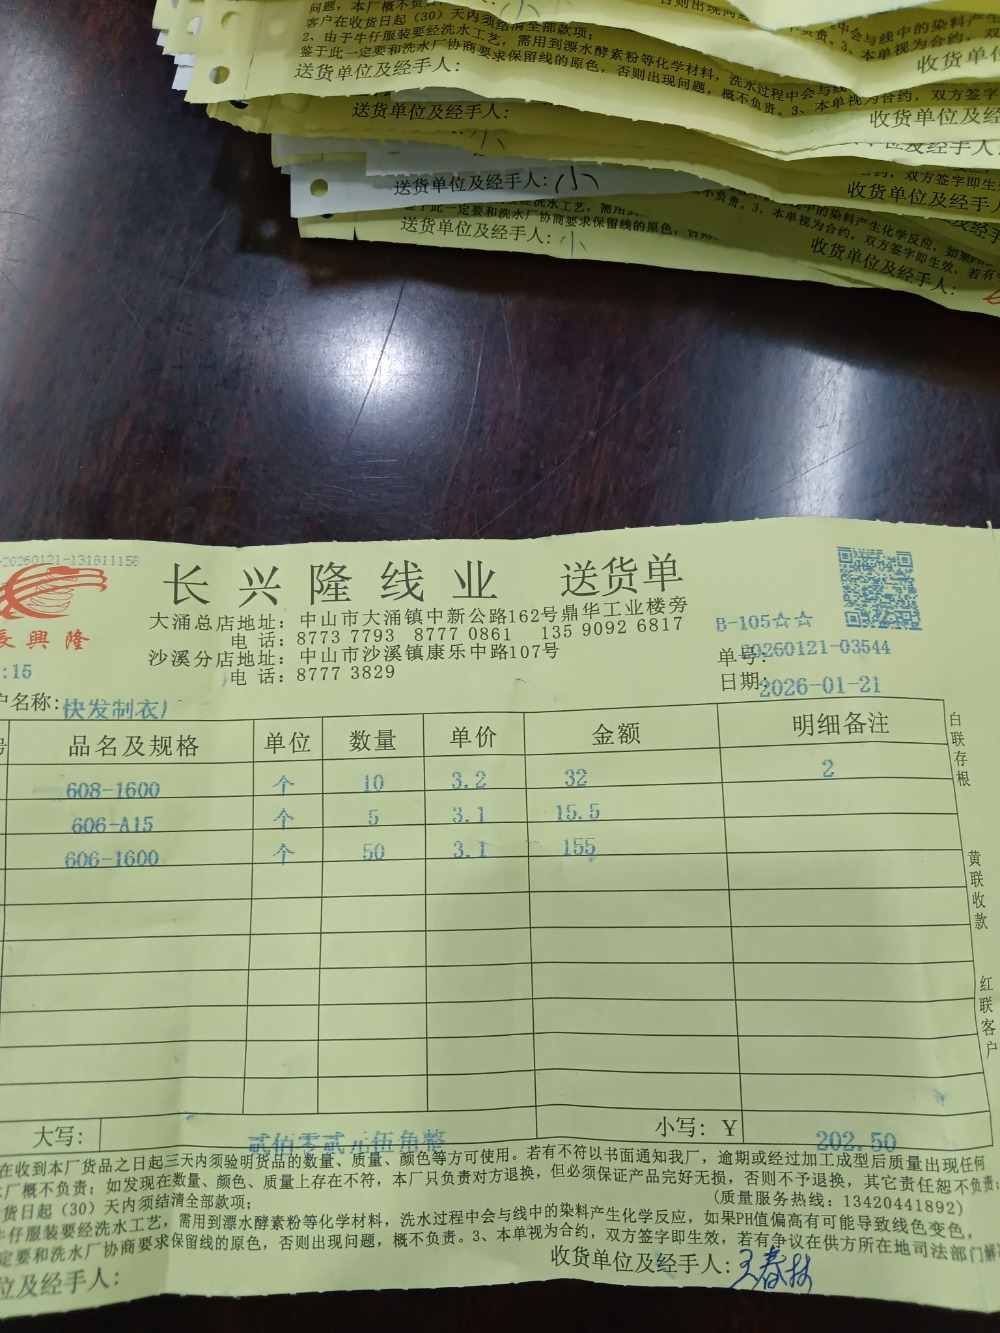 问题，本厂概不负
客户在收货日起（30）天内须结清全部款项；
2、由于牛仔服装要经洗水工艺，需用到漂水酵素粉等化学材料，洗水过程中会与线
鉴于此一定要和洗水厂协商要求保留线的原色，否则出现问题，概不负责。3、本单视为合约，双方签字
送货单位及经手人：
收货单位及经
送货单位及经手人：
收货单位及经手人
送货单位及经手人：小
收货单位及经手人
送货单位及经手人：小
收货单位及经手人：
-20260121-131811158
長興隆
:15
长兴隆线业 送货单
大涌总店地址：中山市大涌镇中新公路162号鼎华工业楼旁
电 话：8773 7793 8777 0861 135 9092 6817
沙溪分店地址：中山市沙溪镇康乐中路107号
电 话：8777 3829
B-105☆☆
单号：20260121-03544
日期：2026-01-21
户名称：快发制衣厂
品名及规格 单位 数量 单价 金额 明细备注
608-1600 个 10 3.2 32 2
606-A15 个 5 3.1 15.5
606-1600 个 50 3.1 155
白联存根
黄联收款
红联客户
大写： 贰佰零贰元伍角整 小写：Y 202.50
在收到本厂货品之日起三天内须验明货品的数量、质量、颜色等方可使用。若有不符以书面通知我厂，逾期或经过加工成型后质量出现任何
厂概不负责；如发现在数量、颜色、质量上存在不符，本厂只负责对方退换，但必须保证产品完好无损，否则不予退换，其它责任恕不负责；
货日起（30）天内须结清全部款项；
（质量服务热线：13420441892）
牛仔服装要经洗水工艺，需用到漂水酵素粉等化学材料，洗水过程中会与线中的染料产生化学反应，如果PH值偏高有可能导致线色变色，
定要和洗水厂协商要求保留线的原色，否则出现问题，概不负责。3、本单视为合约，双方签字即生效，若有争议在供方所在地司法部门解
位及经手人：
收货单位及经手人：王春林